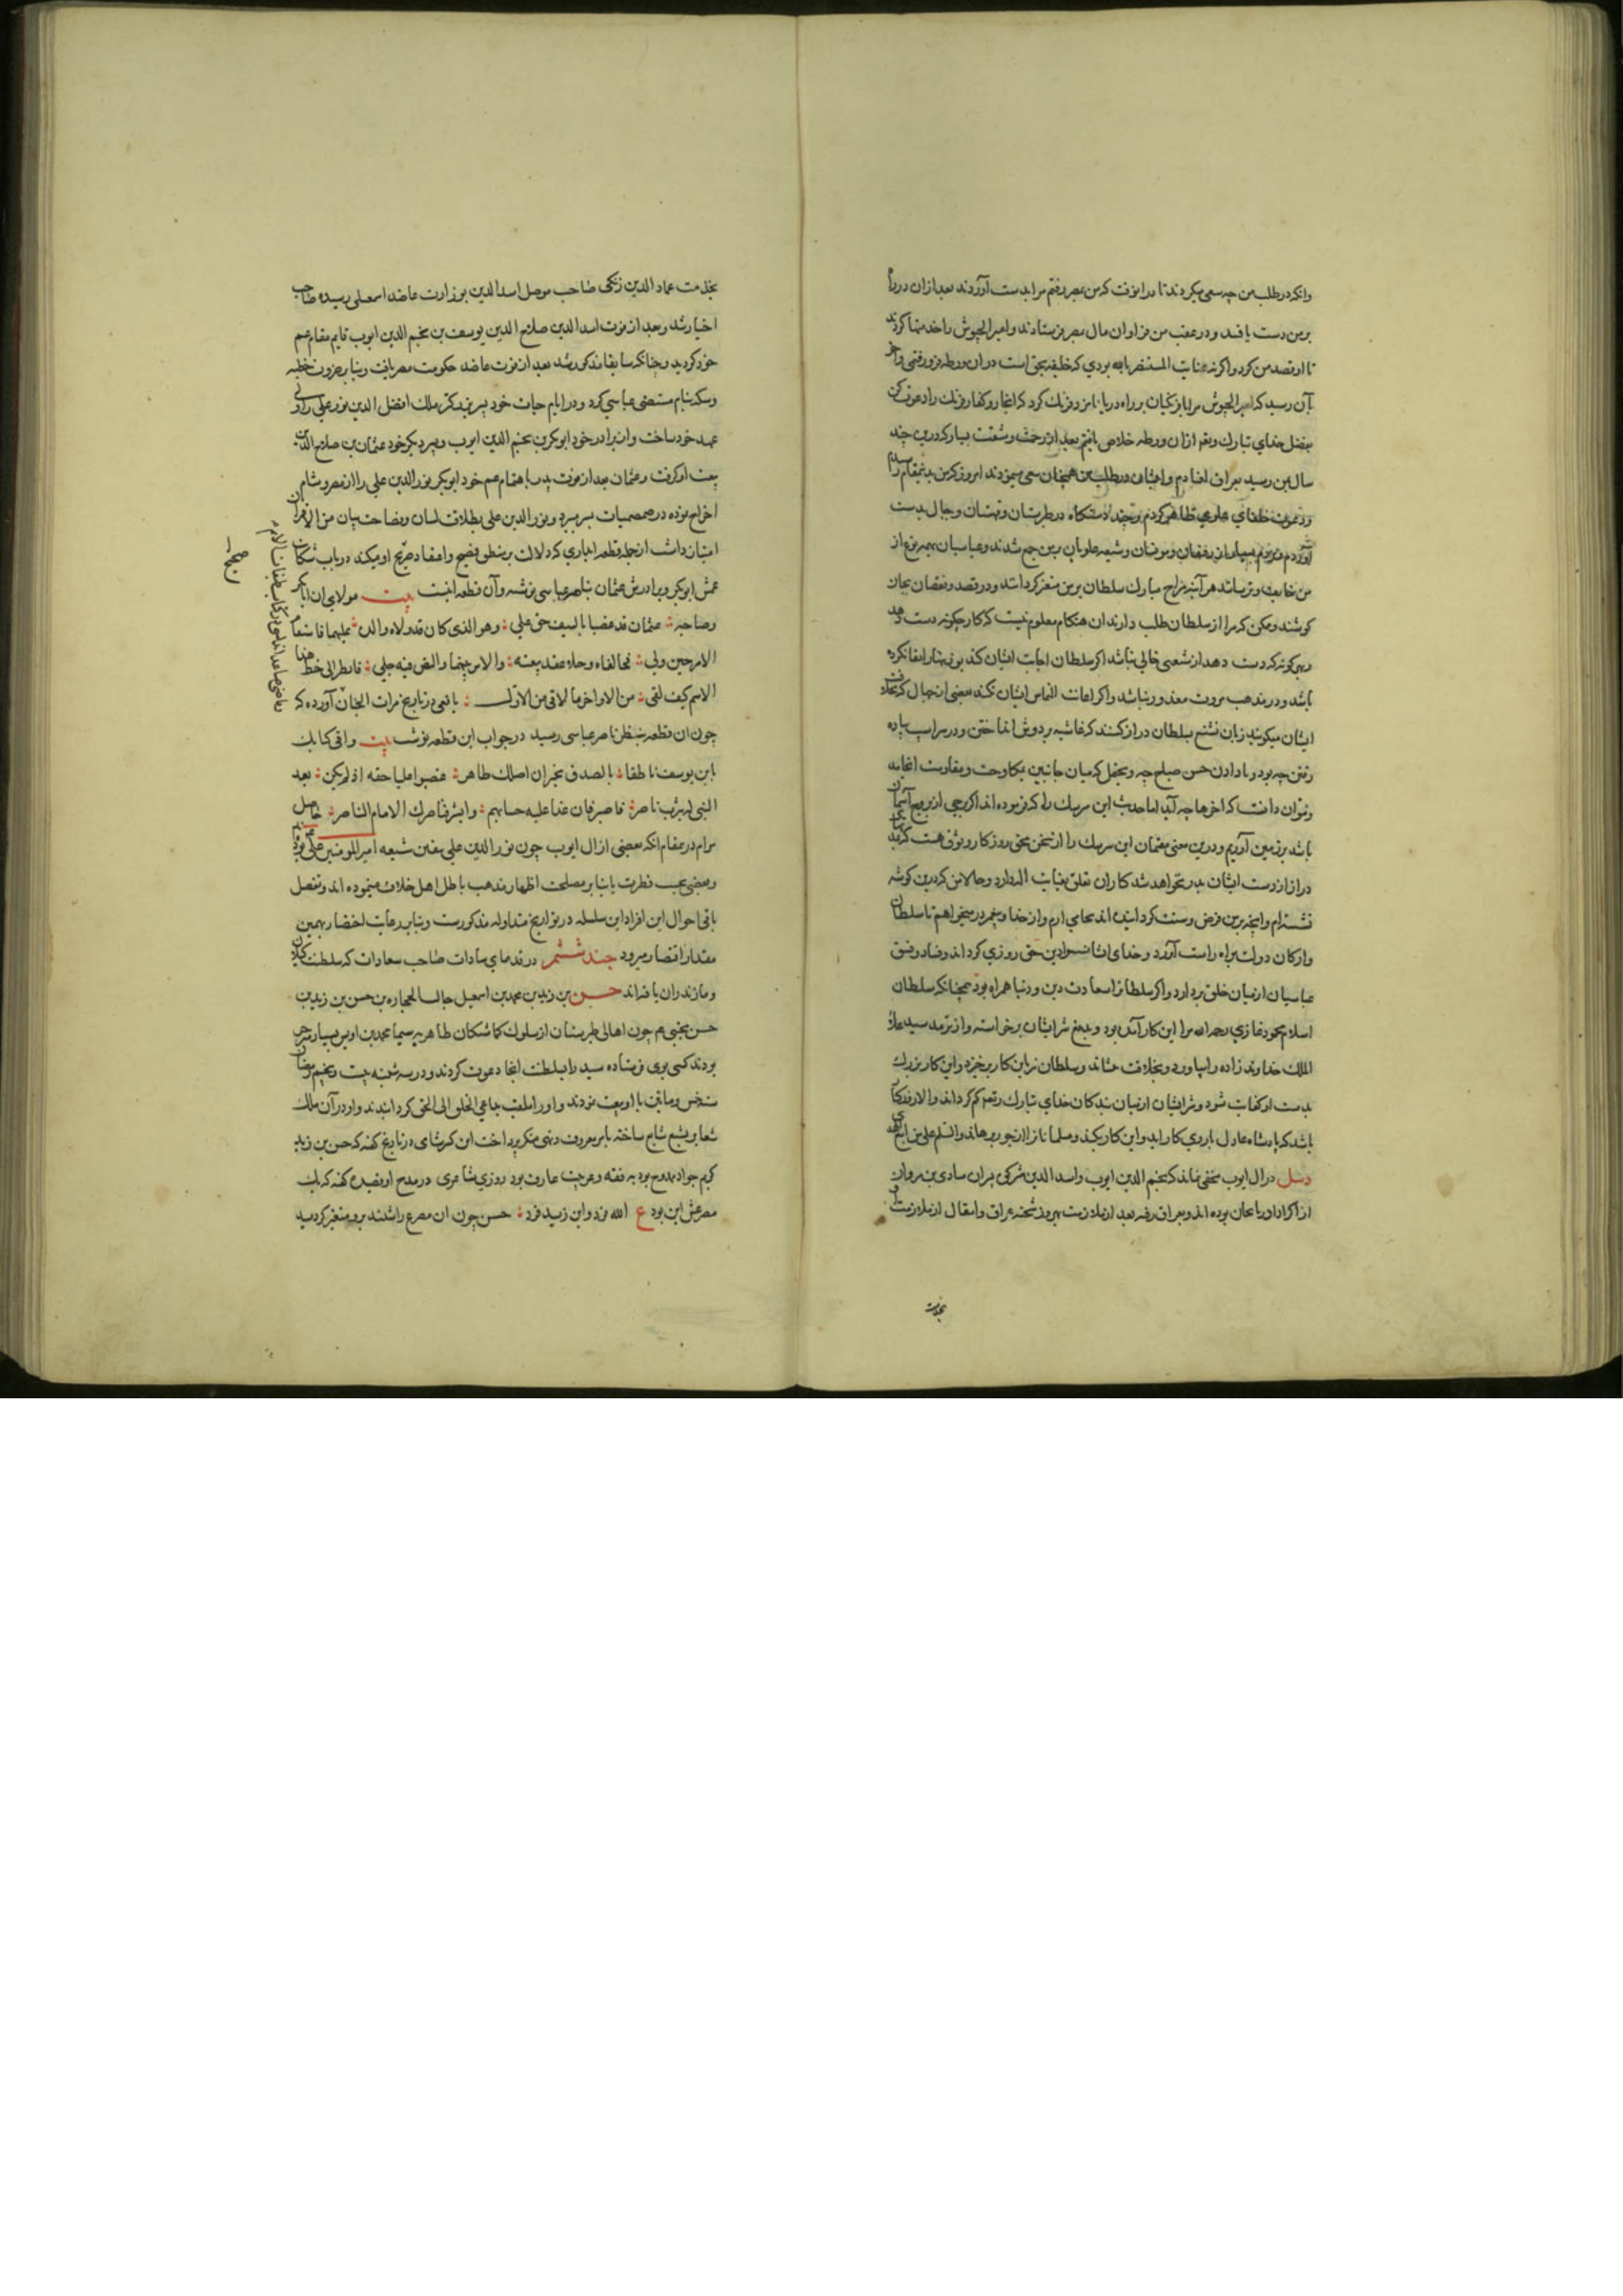 وانکه در طلب من چه سعی میکردند تا در انوقت که من بمصر رفتم مرا بدست آوردند بعد ازان در راه
بر من دست یافتند و در عقب من فراوان مال بمصر فرستادند و امیر الجیوش را خدمتها کردند
تا او قصد من کرد و اگر نه عنایت المستنصر بالله بودی که خلیفه بحق است دران ورطه فرو رفتمی و اخر
بآن رسید که امیر الجیوش مرا با فرنگیان بر راه دریا نامزد فرنک کرد که انجا رو کفار فرنک را دعوت کن
بفضل خدای تبارک و تعالی ازان ورطه خلاص یافتم بعد از زحمت و مشقت بسیار که درین چند
سال بمن رسید بعراق افتادم و ایشان در طلب من همچنان سعی مینمودند امروز که من بدینمقام رسیدم
و دعوت خلفای علوی ظاهر کردم و چند دستکاه در طبرستان و قهستان و جبال بدست
آوردم و مردم بسیار از رفیقان و مومنان و شیعه علویان بر من جمع شدند و عباسیان بهمه نوع از
من خایف و ترسانند هر آینه مزاج مبارک سلطان بر من متغیر کرداننده و در قصد و نقصان بجان
کوشند و ممکن که مرا از سلطان طلب دارند ان هنکام معلوم نیست که کار چکونه دست دهد
و بهر کونه که دست دهد از شنعتی خالی نباشد اکر سلطان اجابت ایشان کند
باشد و در مذهب مروت معذور نباشد و اکر اجابت التماس ایشان نکند بعضی از جهال
ایشان میکویند زبان تشنیع بسلطان دراز کنند که غاشیه بر دوش انداختن و در پس اسب پیاده
رفتن چه بود و داد دادن حسن صباح چه و یحتمل که میان جانبین بمکاوحت و مقاومت انجامد
و نتوان دانست که اخرها چه آید اما حدیث این سرسنک را که فرموده اند اکر برجی از بروج آسمان
باشد بر زمین آوریم و درین معنی مقیمان این سرسنک را از سخن محق روزکار وثوق هست که
دراز از دست ایشان بدر نخواهد شد کار ان تعلق بعنایت اله دارد و حالا من که درین کوشه
نشسته ام و انچه بر من فرض و سنت کرده اند بجای ارم و از خدا و پیغمبر در میخواهم تا سلطان
و ارکان دولت براه راست آورد و خدای ایشانرا دین حق روزی کرداند و فساد و فسق
عباسیان از میان خلق بردارد و اکر سلطانرا سعادت دین و دنیا همراه بود همچنانکه سلطان
اسلام محمود غازی رحمه الله مر این کار آمده بود و بدفع شر ایشان برخواسته و از ترمد سید علاء
الملک خداوند زاده را بیاورد و بخلافت بنشاند و سلطان نیز این کار برخیزد و این کار بزرک
بدست او کفایت شود و شر ایشان از میان بندکان خدای تبارک و تعالی کم کرداند و الا روزکاری
باشد که پادشاه عادل با روی کار اید و این کار بکند و مسلمانانرا از جور برهاند والسلم علی من اتبع الهدی
در ال ایوب مخفی نماند که نجم الدین ایوب و اسد الدین شرکوه پسران شادی بن مروان
از اکراد اذربایجان بوده اند و بعراق رفته بعد از ملازمت بهروز شحنه عراق و انتقال از ملازمت او
بخدمت
بخدمت عماد الدین زنکی صاحب موصل اسد الدین بوزارت عاضد اسمعیلی رسیده صاحب
اختیار شد و بعد از فوت اسد الدین صلاح الدین یوسف بن نجم الدین ایوب قایم مقام عم
خود کردید و چنانکه سابقا مذکور شد بعد از فوت عاضد حکومت مصر یافت و بنابر ضرورت خطبه
و سکه بنام مستضی عباسی کرد و در ایام حیات خود پسر بزرکتر ملک افضل الدین نور علی را ولی
عهد خود ساخت و از برادر خود ابوبکر بن نجم الدین ایوب و پسر دیکر خود عثمان بن صلاح الدین
بیعت او کرفت و عثمان بعد از فوت پدر باهتمام عم خود ابوبکر نور الدین علی را از مصر و شام
اخراج نموده در صمصیات بسر میبرد و نور الدین علی بطلاقت لسان و فصاحت بیان من الاقران
امتیاز داشت از جمله قطعه اخباری که دلالت بر منطق فصیح و اعتقاد صریح او میکند در باب شکایت
عمش ابوبکر و برادرش عثمان بناصر عباسی نوشته و آن قطعه اینست بیت مولای ان ابابکر
وصاحبه عثمان قد غصبا بالسیف حق علی وهو الذی کان قد ولاه والده علیهما فاستقام
الامر حین ولی فخالفاه وحلا عقد بیعته والامر بینهما والنص فیه جلی فانظر الی حظ هذا
الاسم کیف لقی من الاواخر ما لاقی من الاول یافعی در تاریخ مرات الجنان آورده که
چون ان قطعه بنظر ناصر عباسی رسید در جواب این قطعه نوشت بیت وافی کتابک
یابن یوسف ناطقا بالصدق یخبر ان اصلک طاهر غصبوا علیا حقه اذ لم یکن بعد
النبی له بیثرب ناصر فاصبر فان غدا علیه حسابهم وابشر فناصرک الامام الناصر حاصل
مرام در مقام انکه بعضی از ال ایوب چون نور الدین علی بیقین شیعه امیر المومنین علی بوده اند
و بعضی بحسب فطرت یا بنابر مصلحت اظهار مذهب باطل اهل خلاف مینموده اند و تفصیل
باقی احوال این افراد این سلسله در تواریخ متداوله مذکورست و بنابر رعایت اختصار بهمین
مقدار اقتصار میرود جند ششم در قدمای سادات صاحب سعادات که سلطنت کیلان
و مازندران یافته اند حسن بن زید بن محمد بن اسمعیل جالب الحجاره بن حسن بن زید بن
حسن مجتبی چون اهالی طبرستان از سلوک کماشتکان طاهریه سیما محمد بن اوس بسیار
بودند کسی بوی فرستاده سید را بسلطنت انجا دعوت کردند و در سه شنبه بیست و پنجم رمضان
سنه خمس و ماتین با او بیعت نمودند و او را ملقب بداعی الخلق الی الحق کردانیدند و او در آن ملک
شعایر تشیع شایع ساخته بامر معروف و نهی منکر پرداخت ابن کثیر شامی در تاریخ کفته که حسن بن زید
کریم جواد ممدوح بود به فقه و عربیت عارف بود روزی شاعری در مدح او قصیده کفته که یک
مصرعش این بود ع الله فرد وابن زید فرد حسن چون ان مصرع را شنید برو متغیر کردید
صح